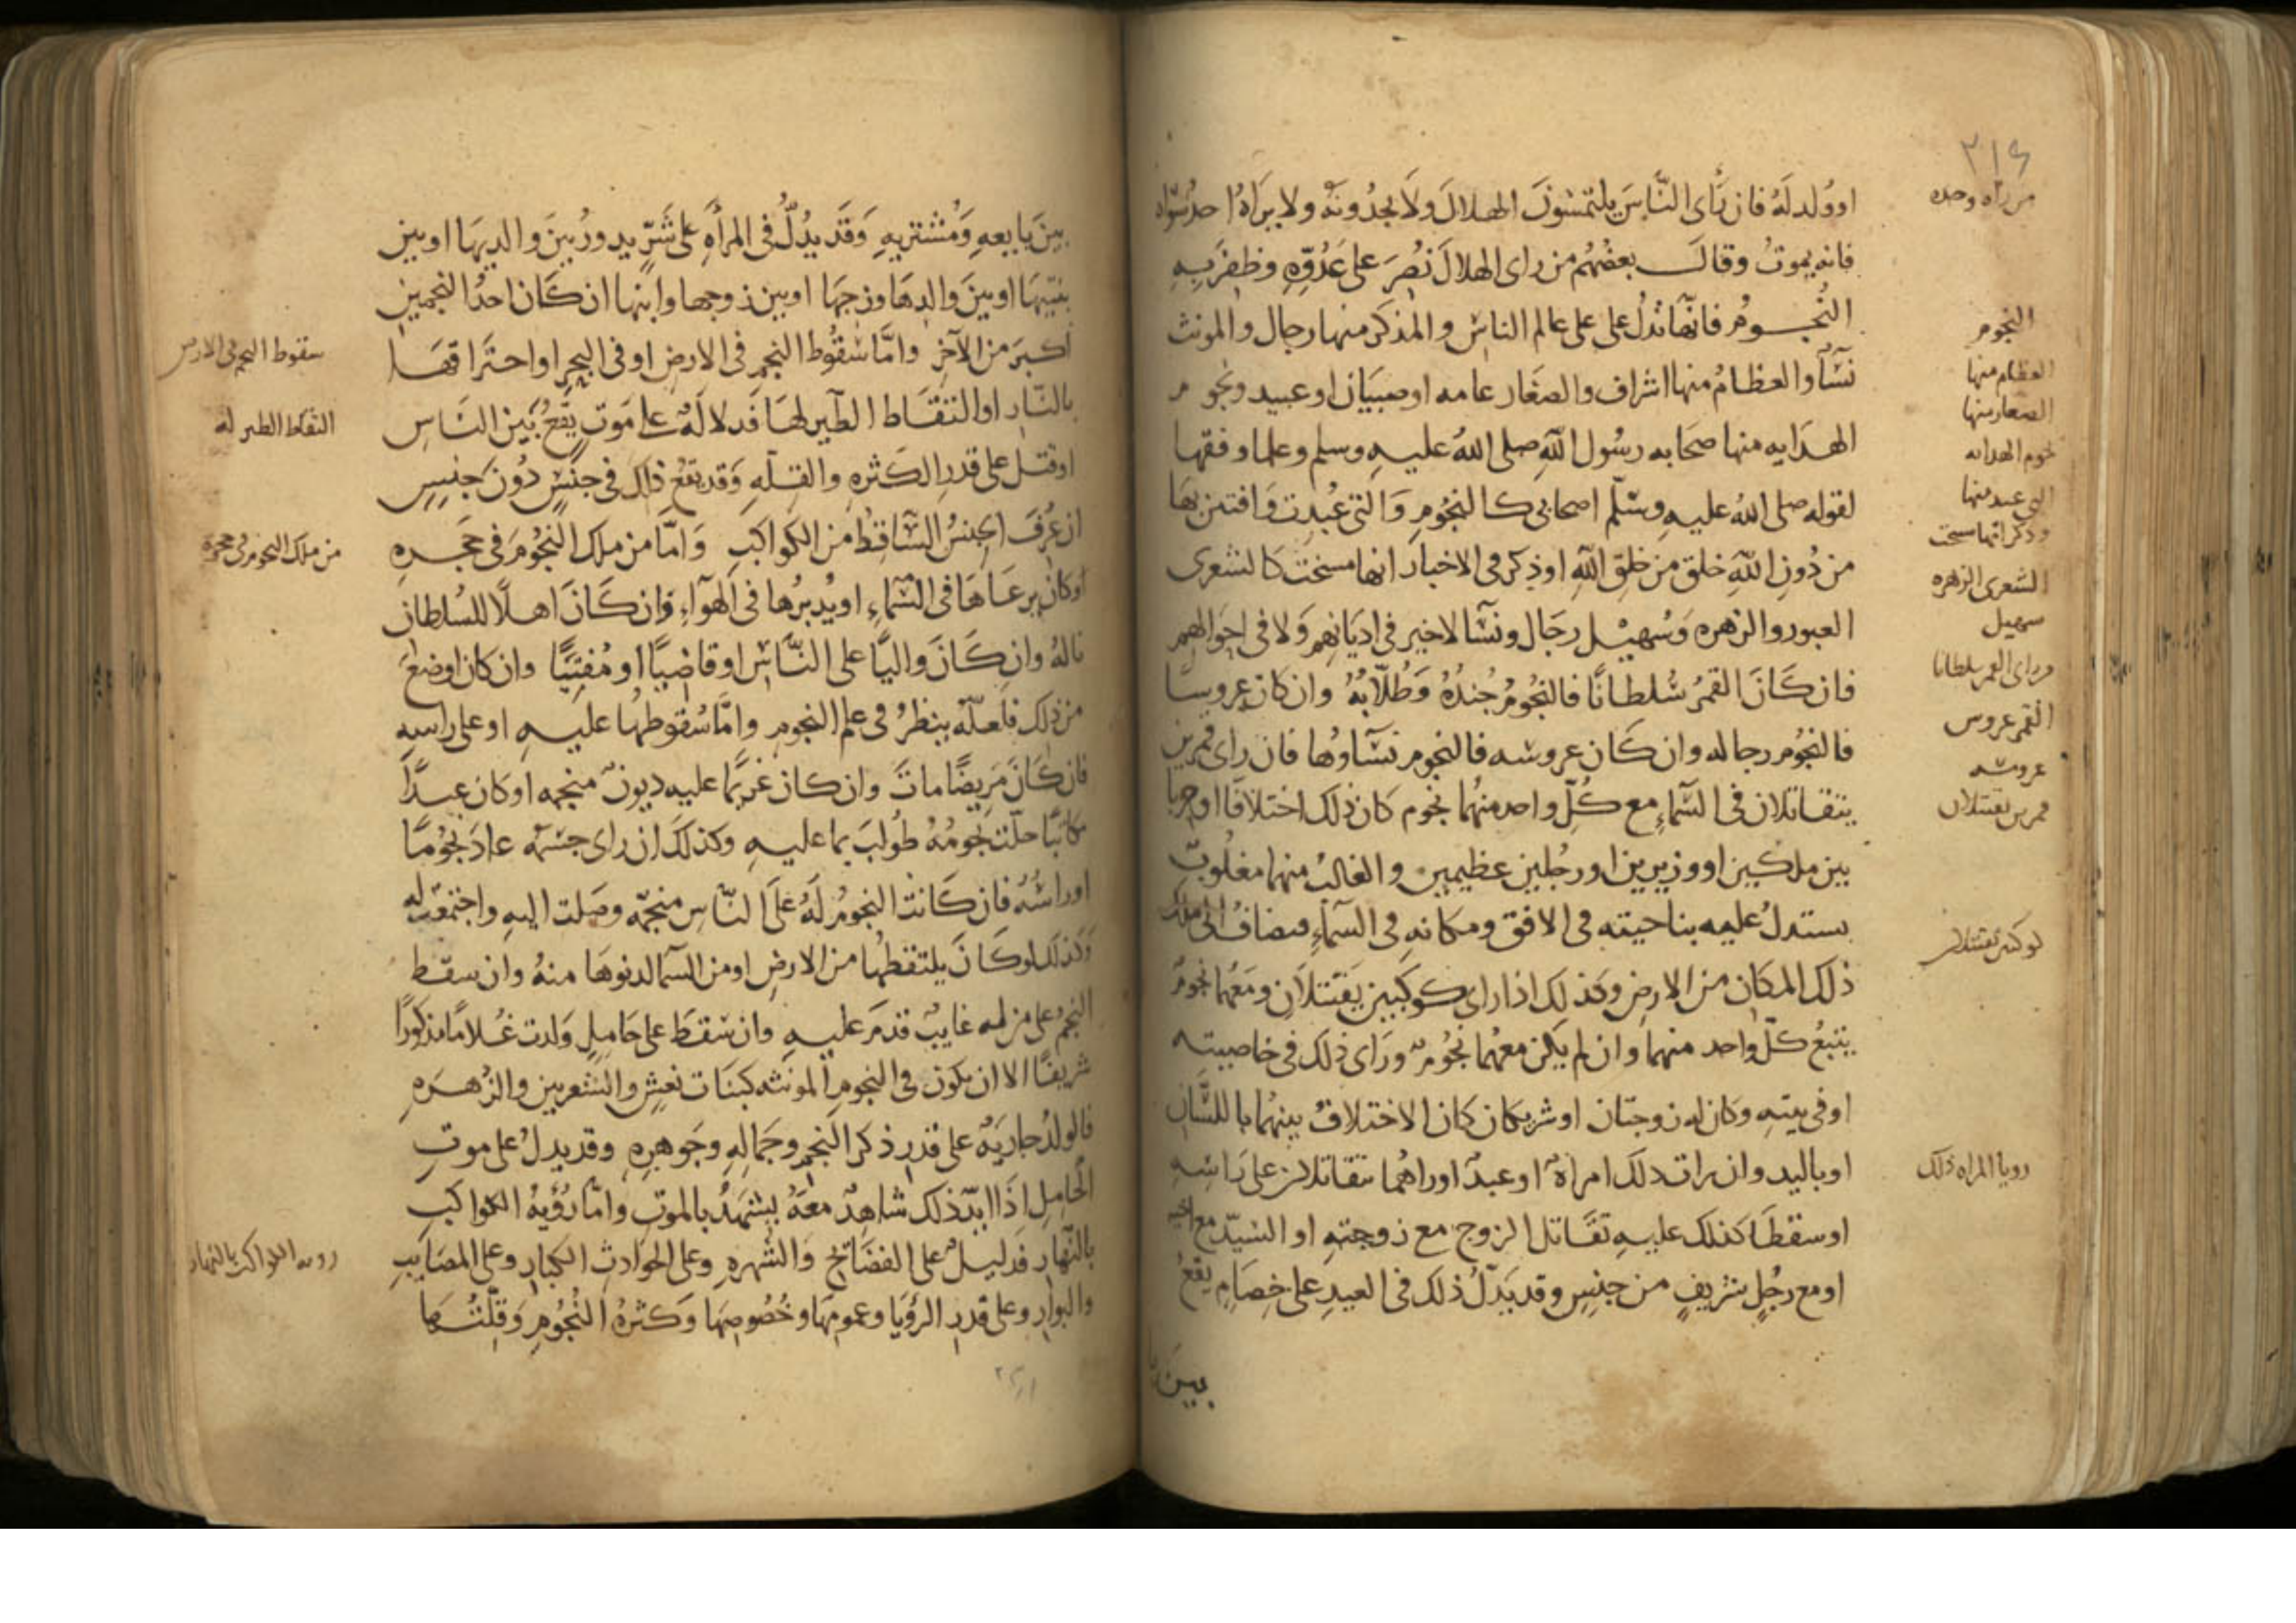 ٢١٤
من رآه وحده
او وُلد لَهُ فان رَأى النَّاسَ يلتمسُونَ الهلالَ ولَا يجدُونَهُ ولا يراهُ احد سواه
فانه يموتُ وقالـــ بعضُهُم من راى الهلالَ نُصِرَ على عَدُوّهِ وظفَرَ بِهِ
النُجـومُ فانّها تدُل على على عالم الناس والمذكر منها رجال والمونث
نسآ والعظامُ منها اشراف والصغار عامه او صبيان او عبيد ونجوم
الهدَايه منها صحَابه رسُول اللَّهِ صلى اللهُ عليهِ وسلم وعلما وفقها
لقوله صلى اللهُ عليهِ وسَلّم اصحابى كالنجُومِ وَالتى عُبِدت وَافتتن بهَا
من دُونِ اللَّهِ خلق من خلقِ اللَّهِ او ذِكر فى الاخبار انها مسخت كالشعرى
العبور والزهره وَسُهيْل رجَال ونسآ لا خير فى ادَيَانِهِم وَلا فى احوَالِهم
فان كَانَ القمرُ سُلطانًا فالنجُومُ جُندُهُ وَطُلّابُهُ وان كان عروسًا
فالنجُوم رجاله وان كَان عروسه فالنجوم نسَآوُها فان راى قمرين
يتقاتلان فى السَّماءِ مع كُلّ واحد منهُما نجوم كان ذلك اختلافًا او حربا
بين ملكين او وزيرين او رجُلين عظيمين والغالبُ منهما مغلُوبٌ
يستدلُ عليه بناحيته فى الافق ومكانهِ فى السَّماءِ فيضافُ الى ملك
ذلك المكان من الارض وكذلك اذا راى كوكبين يَقتتلانِ ومعَهُما نجومٌ
يتبعُ كلَّ واحد منهما وان لم يكن معهُما نجُومٌ ورَاى ذلك فى خاصيته
او فى بيتهِ وكان له زوجتان او شريكان كان الاختلافُ بينهُما بالللسَان
او باليد وان رات ذلك امراةٌ او عبدٌ او راهُما تتقاتلان على رَاسِهِ
او سقطَا كذلك عليهِ تقَاتل الزوج مع زوجتهِ او السّيّد مع
او مع رجُلٍ شريفٍ من جنسٍ وقد يَدُلُّ ذلك فى العبيدِ على خِصَامٍ يقعُ
بين
النجوم
العظام منها
الصغار منها
نجوم الهدايه
التى عبد منها
وذكر انها مسخت
الشعرى الزهره
سهيل
وراى القمر سلطانا
القمر عروس
عروسه
قمرين يقتتلان
كوكبين يقتتلان
رويا المراه ذلك
بينَ بَايعهِ وَمُشتريهِ وَقَد يدُلُّ فى المرأَهِ على شَرٍّ يدورُ بينَ والديهَا او بين
بنتيهَا او بينَ والدهَا وزوجهَا او بين زوجها وابنها ان كَان احدُ النجمين
اكبرَ من الآخرِ وامَّا سُقُوط النجم فى الارضِ او فى البحرِ او احترَاقهَا
بالنّارِ او التقَاط الطير لهَا فَدلالَهٌ على مَوتٍ يقَعُ بَين النَاس
او قتل على قدرِ الكثرهِ والقلّهِ وَقد يقعُ ذلك فى جنْسٍ دُونَ جنسٍ
ان عُرفَ الجنسُ السَّاقِطُ من الكواكبِ وَامَّا من ملك النجُومَ فى حَجرهِ
او كانَ يرعَاهَا فى السَّماءِ او يُدبرُها فى الهوآءِ فان كَانَ اهلًا للسُلطان
نالهُ وان كَانَ واليًا على النَّاس او قاضيًا او مُفتِيًا وان كان اوضعَ
من ذلك فلعلّه ينظرُ فى علم النجوم وامَّا سُقوطهُا عليهِ او على راسهِ
فان كَانَ مَرِيضًا ماتَ وان كان غريمًا عليه ديونٌ منجمه او كان عبدًا
مكاتبًا حلّت نجُومُهُ طُولبَ بما عليهِ وكذلكَ ان راى جسَمَه عادَ نجُومًا
او راسُهُ فان كَانت النجومُ لَهُ عَلى النّاس منجّمه وصَلت اليهِ واجتمعَت له
وكذلك لو كانَ يلتقطهُا من الارضِ او من السّما لدنوهَا منهُ وان سقط
النجمُ على من له غايبٌ قدمَ عليهِ وان سَقطَ على حَاملٍ وَلدت غُلامًا مذكورًا
شريفًا الا ان يكون فى النجوم المونثه كبنَات نعشٍ والشعريين والزُهرَهِ
فالولدُ جاريَهٌ على قدرِ ذكر النجمِ وجَمالِهِ وجَوهرهِ وقد يدلُ على موتِ
الحَاملِ اذَا ايدَ ذلك شاهدٌ معَهُ يشهَدُ بالموتِ وامَّا رُؤيَهُ الكواكبِ
بالنّهارِ فدليلٌ على الفضَائح وَالشُهرهِ وعلى الحوادثِ الكبارِ وعلى المصَايبِ
والبوارِ وعلى قدرِ الرؤيَا وعمومهَا وخُصُوصِهَا وَكثرهُ النُجُومِ وَقلّتهَا
سقوط النجم فى الارض
التقاط الطير له
من ملك النجوم فى حجره
رويه الكواكب بالنهار